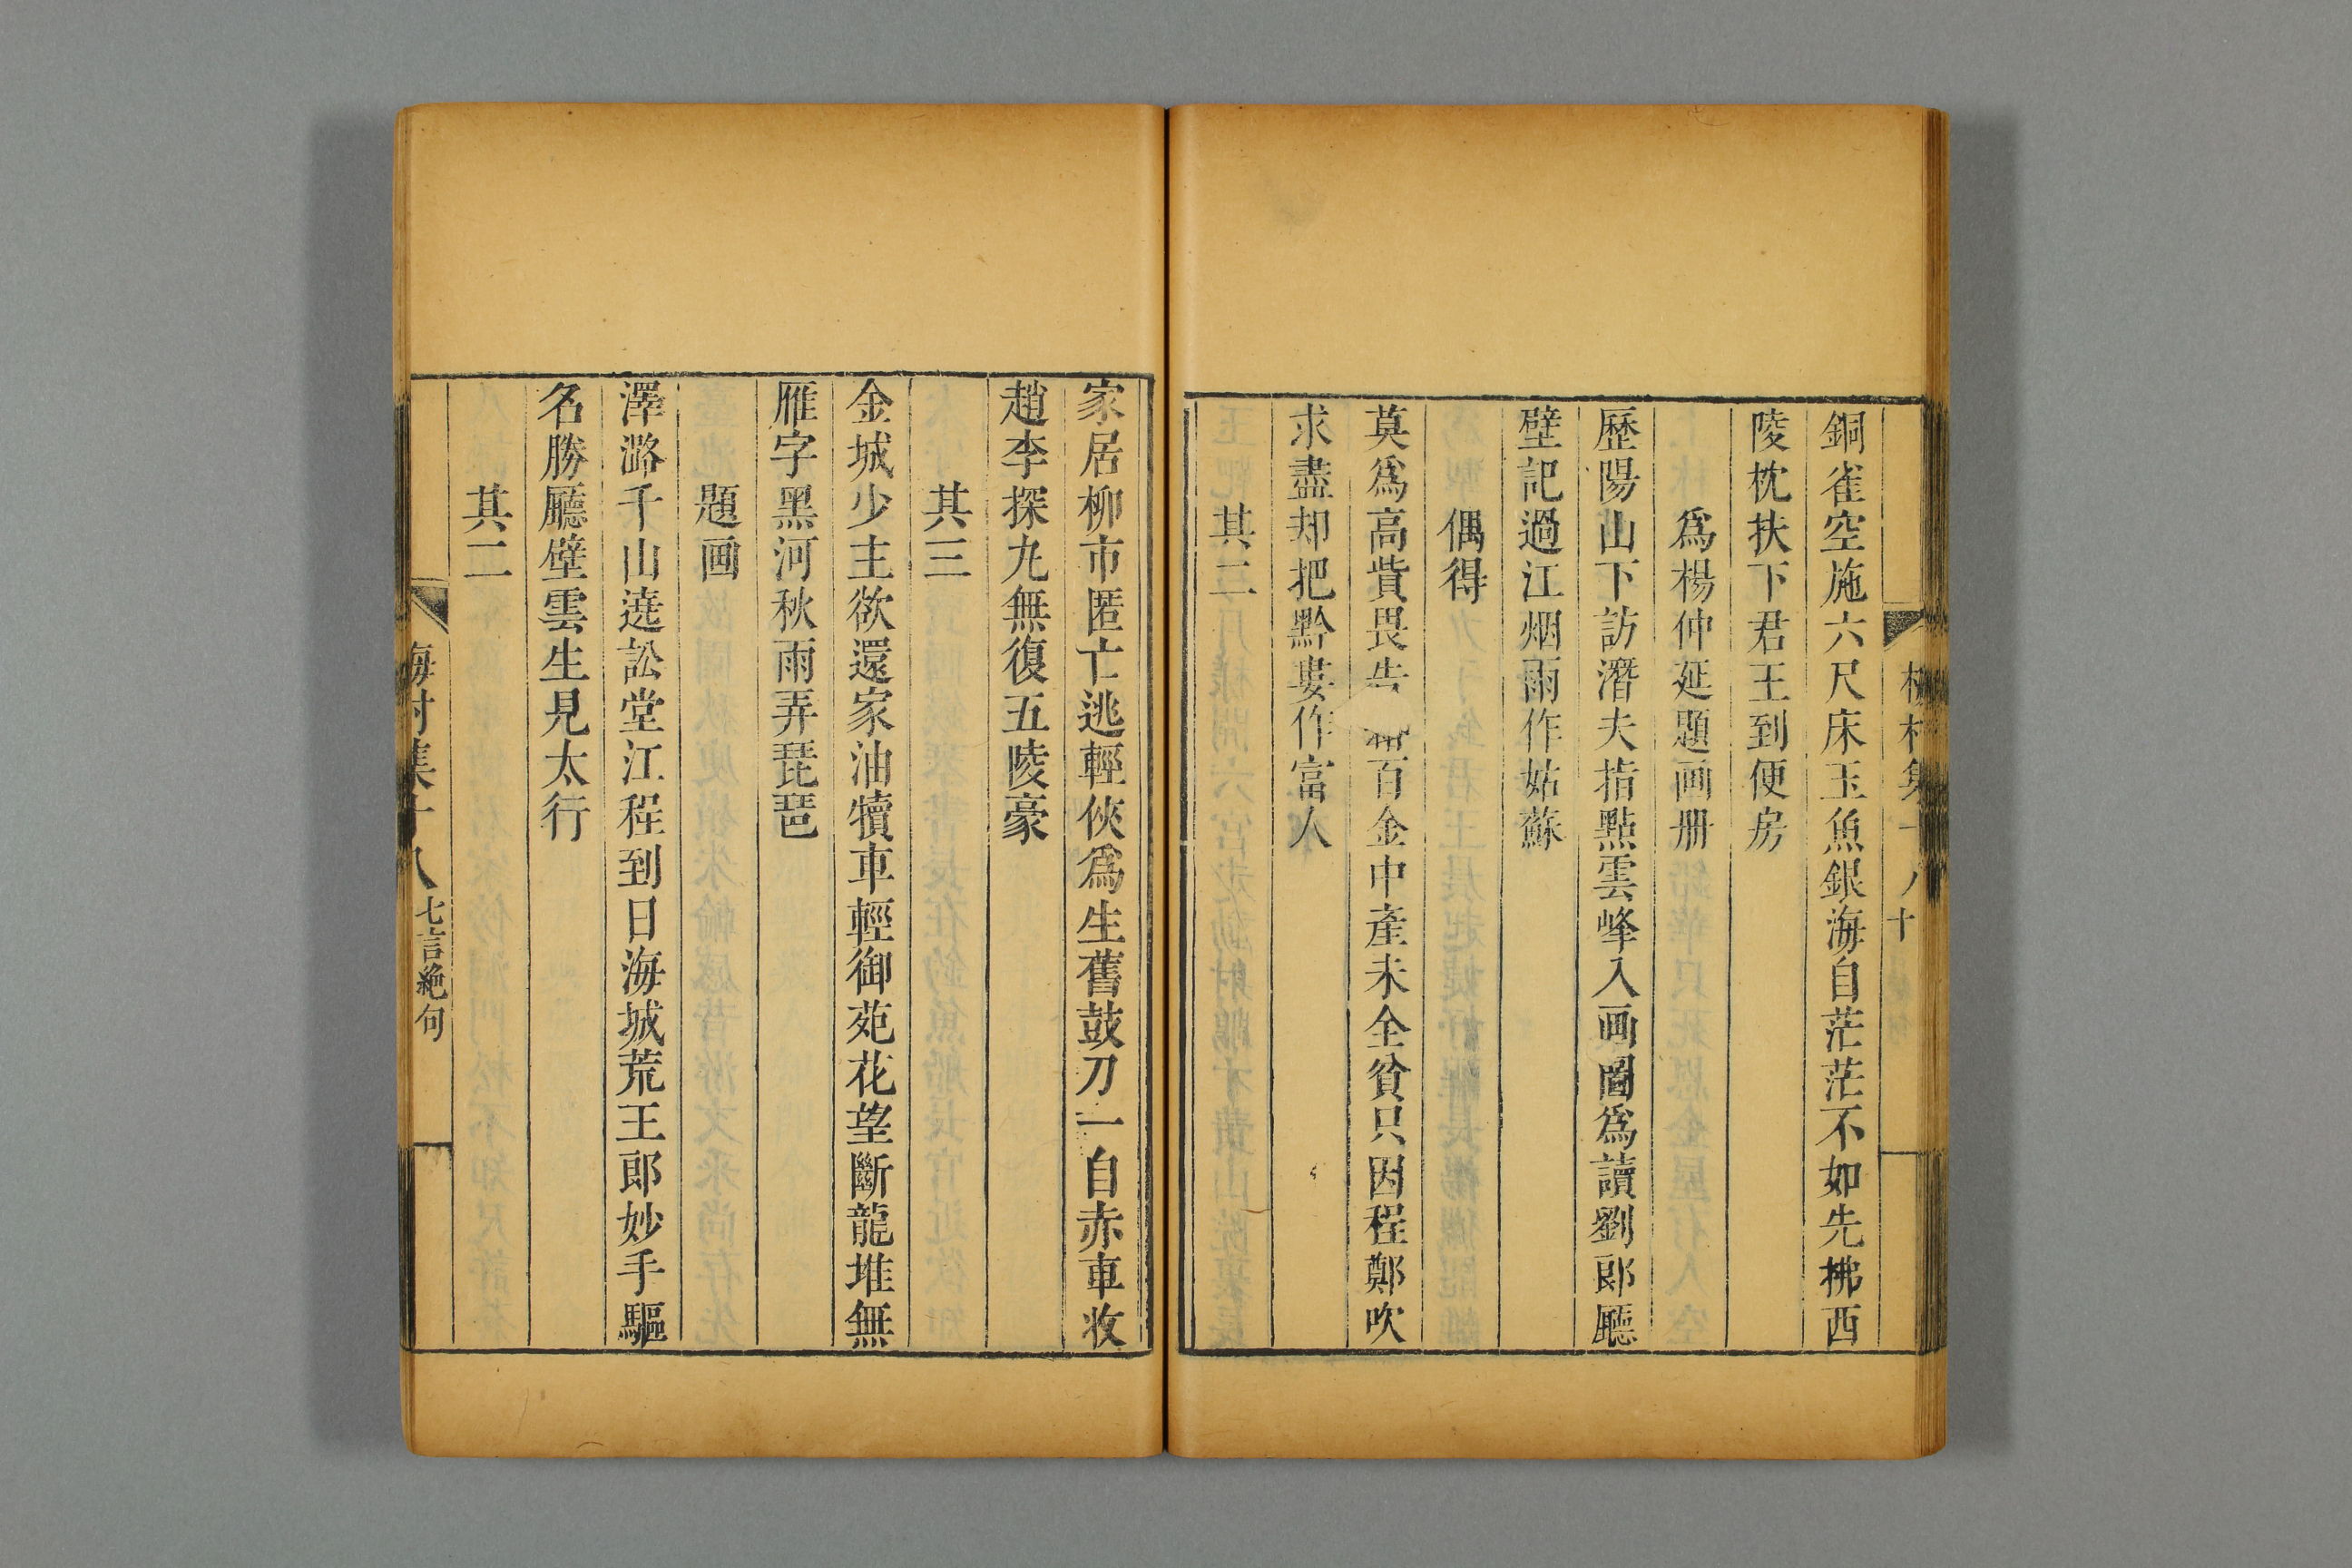 銅雀空施六尺床玉魚銀海自茫茫不如先拂西
陵枕扶下君王到便房
爲楊仲延題画册
歷陽山下訪潛夫指點雲峰入画圖爲讀劉郎廳
壁記過江烟雨作姑蘇
偶得
莫爲高貲畏告緡百金中產未全貧只因程鄭吹
求盡却把黔婁作富人
其二
家居柳市匿亡逃輕俠爲生舊鼓刀一自赤車收
趙李探九無復五陵豪
其三
金城少主欲還家油犢車輕御苑花望斷龍堆無
雁字黑河秋雨弄琵琶
題画
澤潞千山遶訟堂江程到日海城荒王郎妙手驅
名勝廳壁雲生見太行
其二
梅村集十八 七言絶句